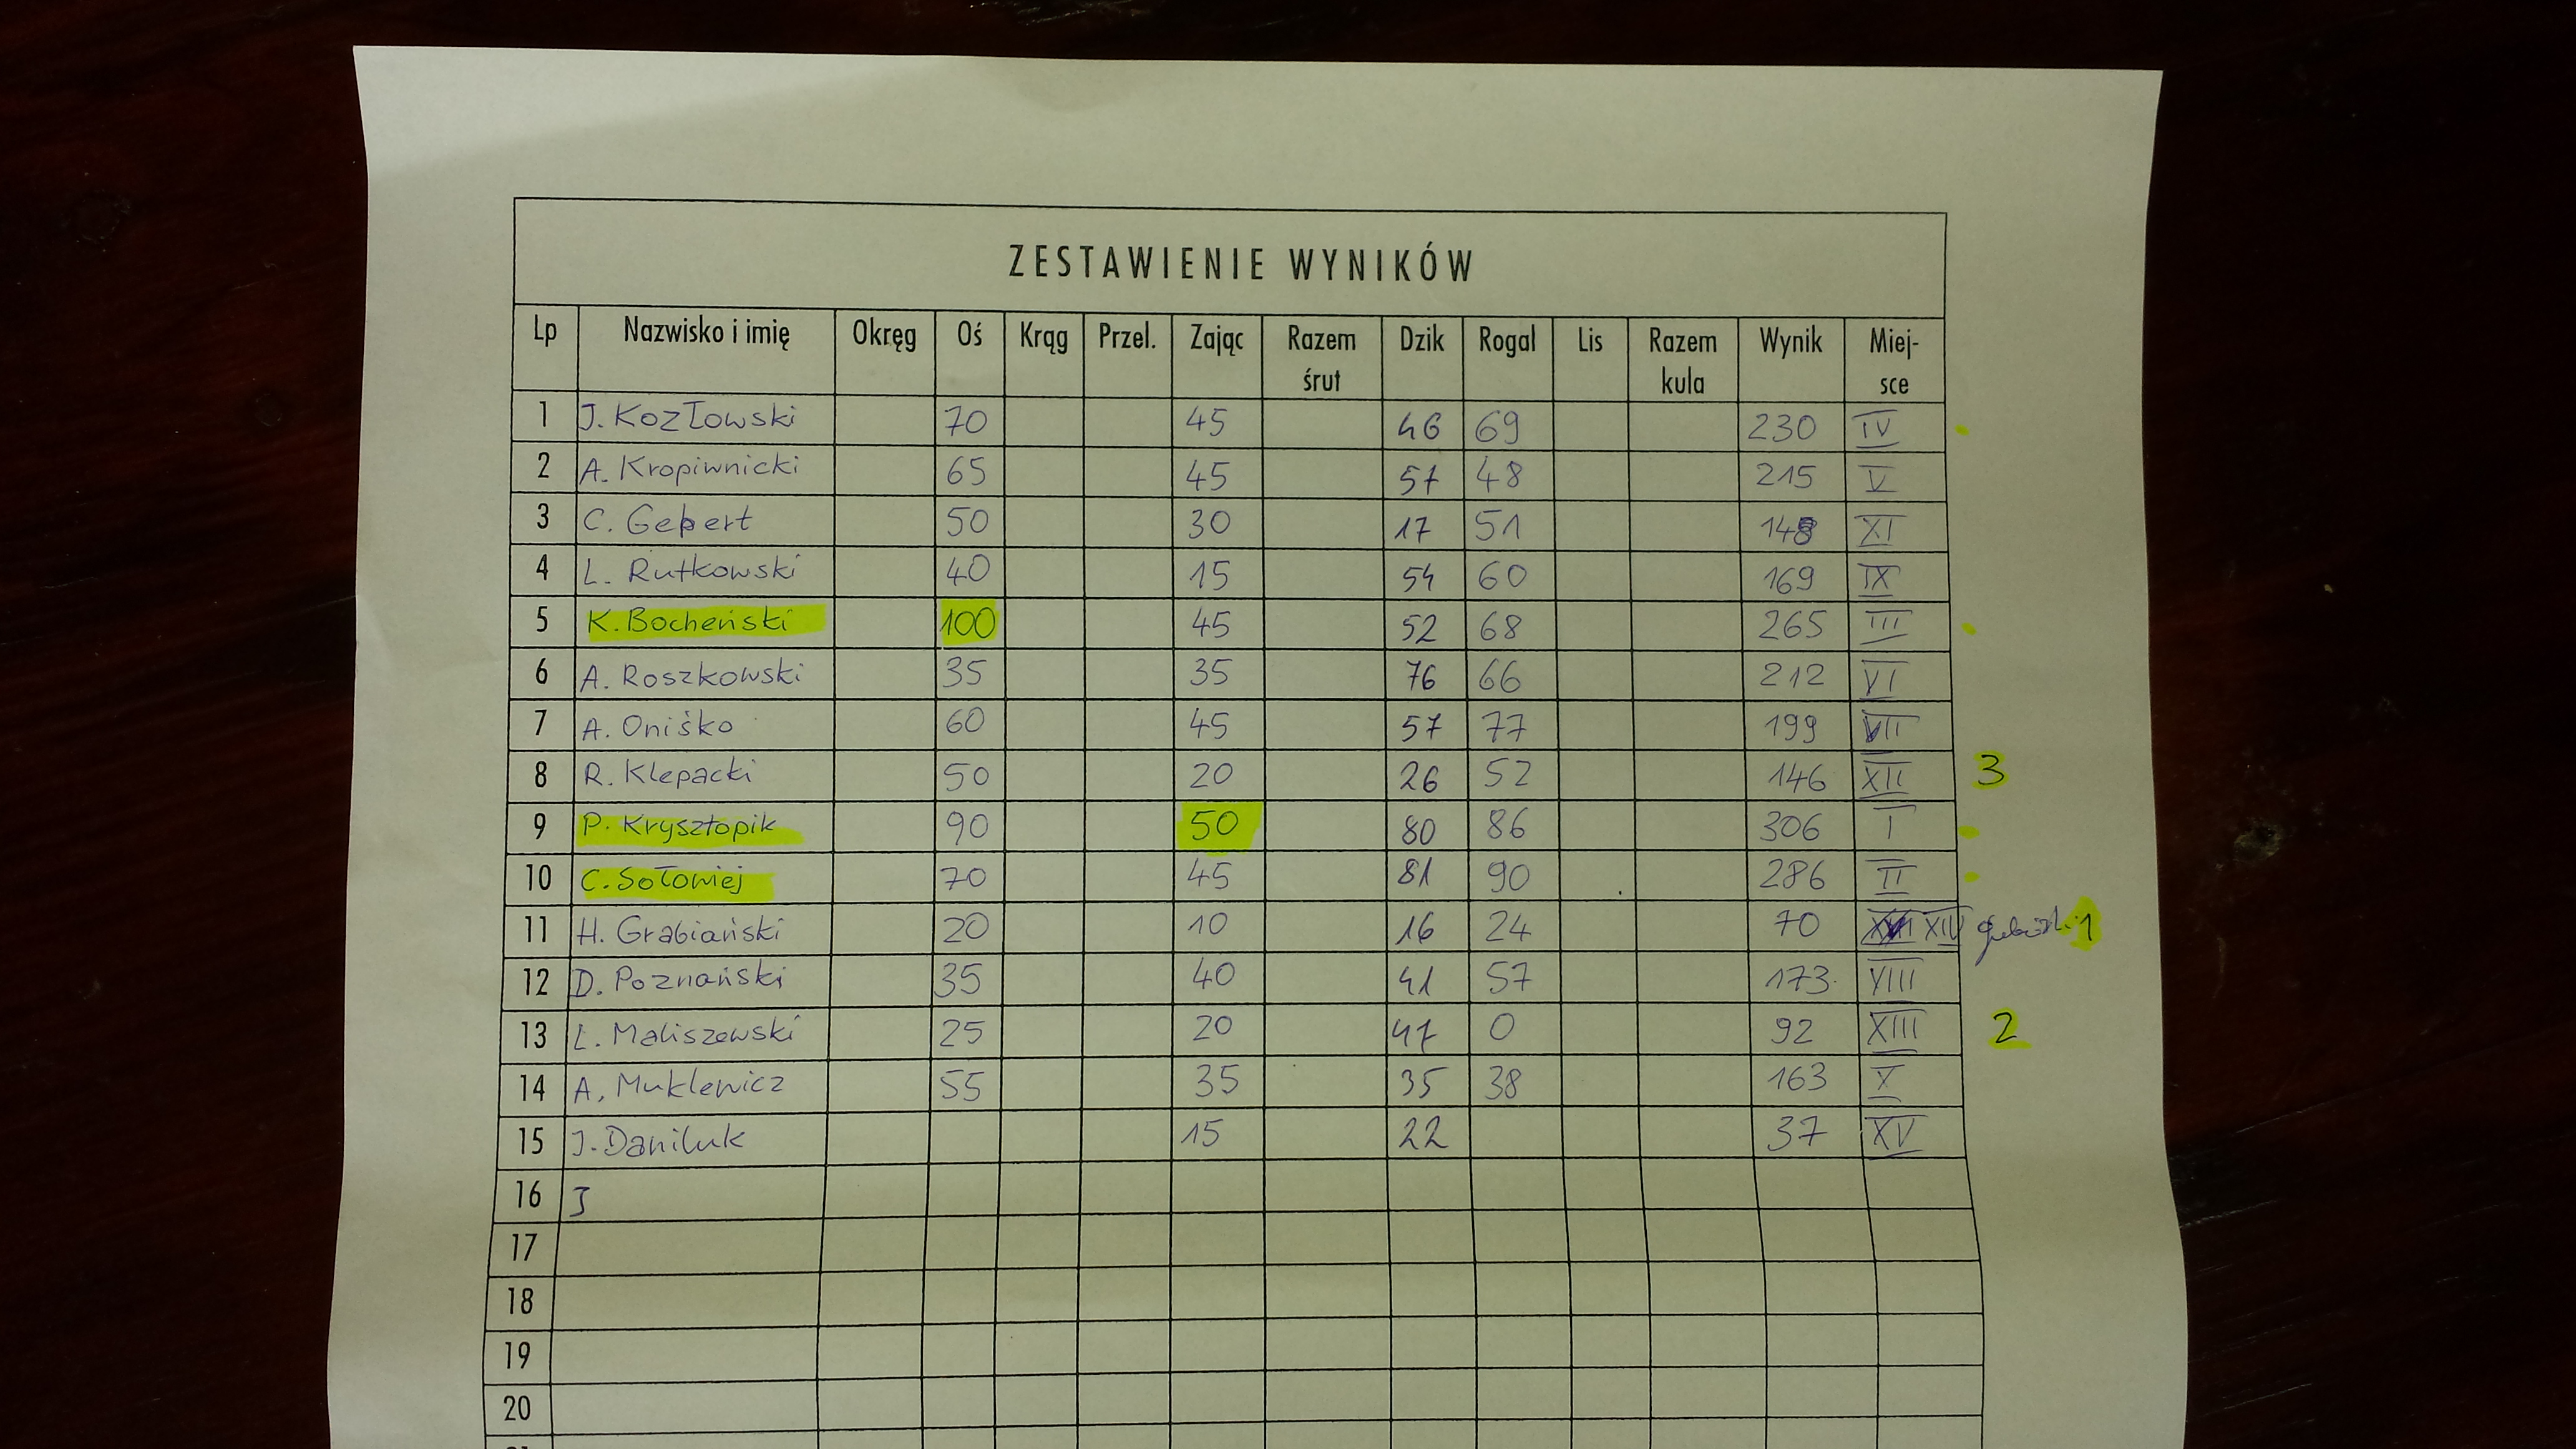 ZESTAWIENIE WYNIKÓW
Lp Nazwisko i imię Okręg Oś Krąg Przel. Zając Razem śrut Dzik Rogal Lis Razem kula Wynik Miej-sce
1 J. Kozłowski 70 45 46 69 230 IV
2 A. Kropiwnicki 65 45 57 48 215 V
3 C. Gebert 50 30 17 51 148 XI
4 L. Rutkowski 40 15 54 60 169 IX
5 K. Bocheński 100 45 52 68 265 III
6 A. Roszkowski 35 35 76 66 212 VI
7 A. Oniśko 60 45 57 77 199 VII
8 R. Klepacki 50 20 26 52 146 XII 3
9 P. Krysztopik 90 50 80 86 306 I
10 C. Sołowiej 70 45 81 90 286 II
11 H. Grabiański 20 10 16 24 70 XIV 1
12 D. Poznański 35 40 41 57 173 VIII
13 L. Maliszewski 25 20 47 0 92 XIII 2
14 A. Muklewicz 55 35 35 38 163 X
15 J. Daniluk 15 22 37 XV
16 J
17
18
19
20